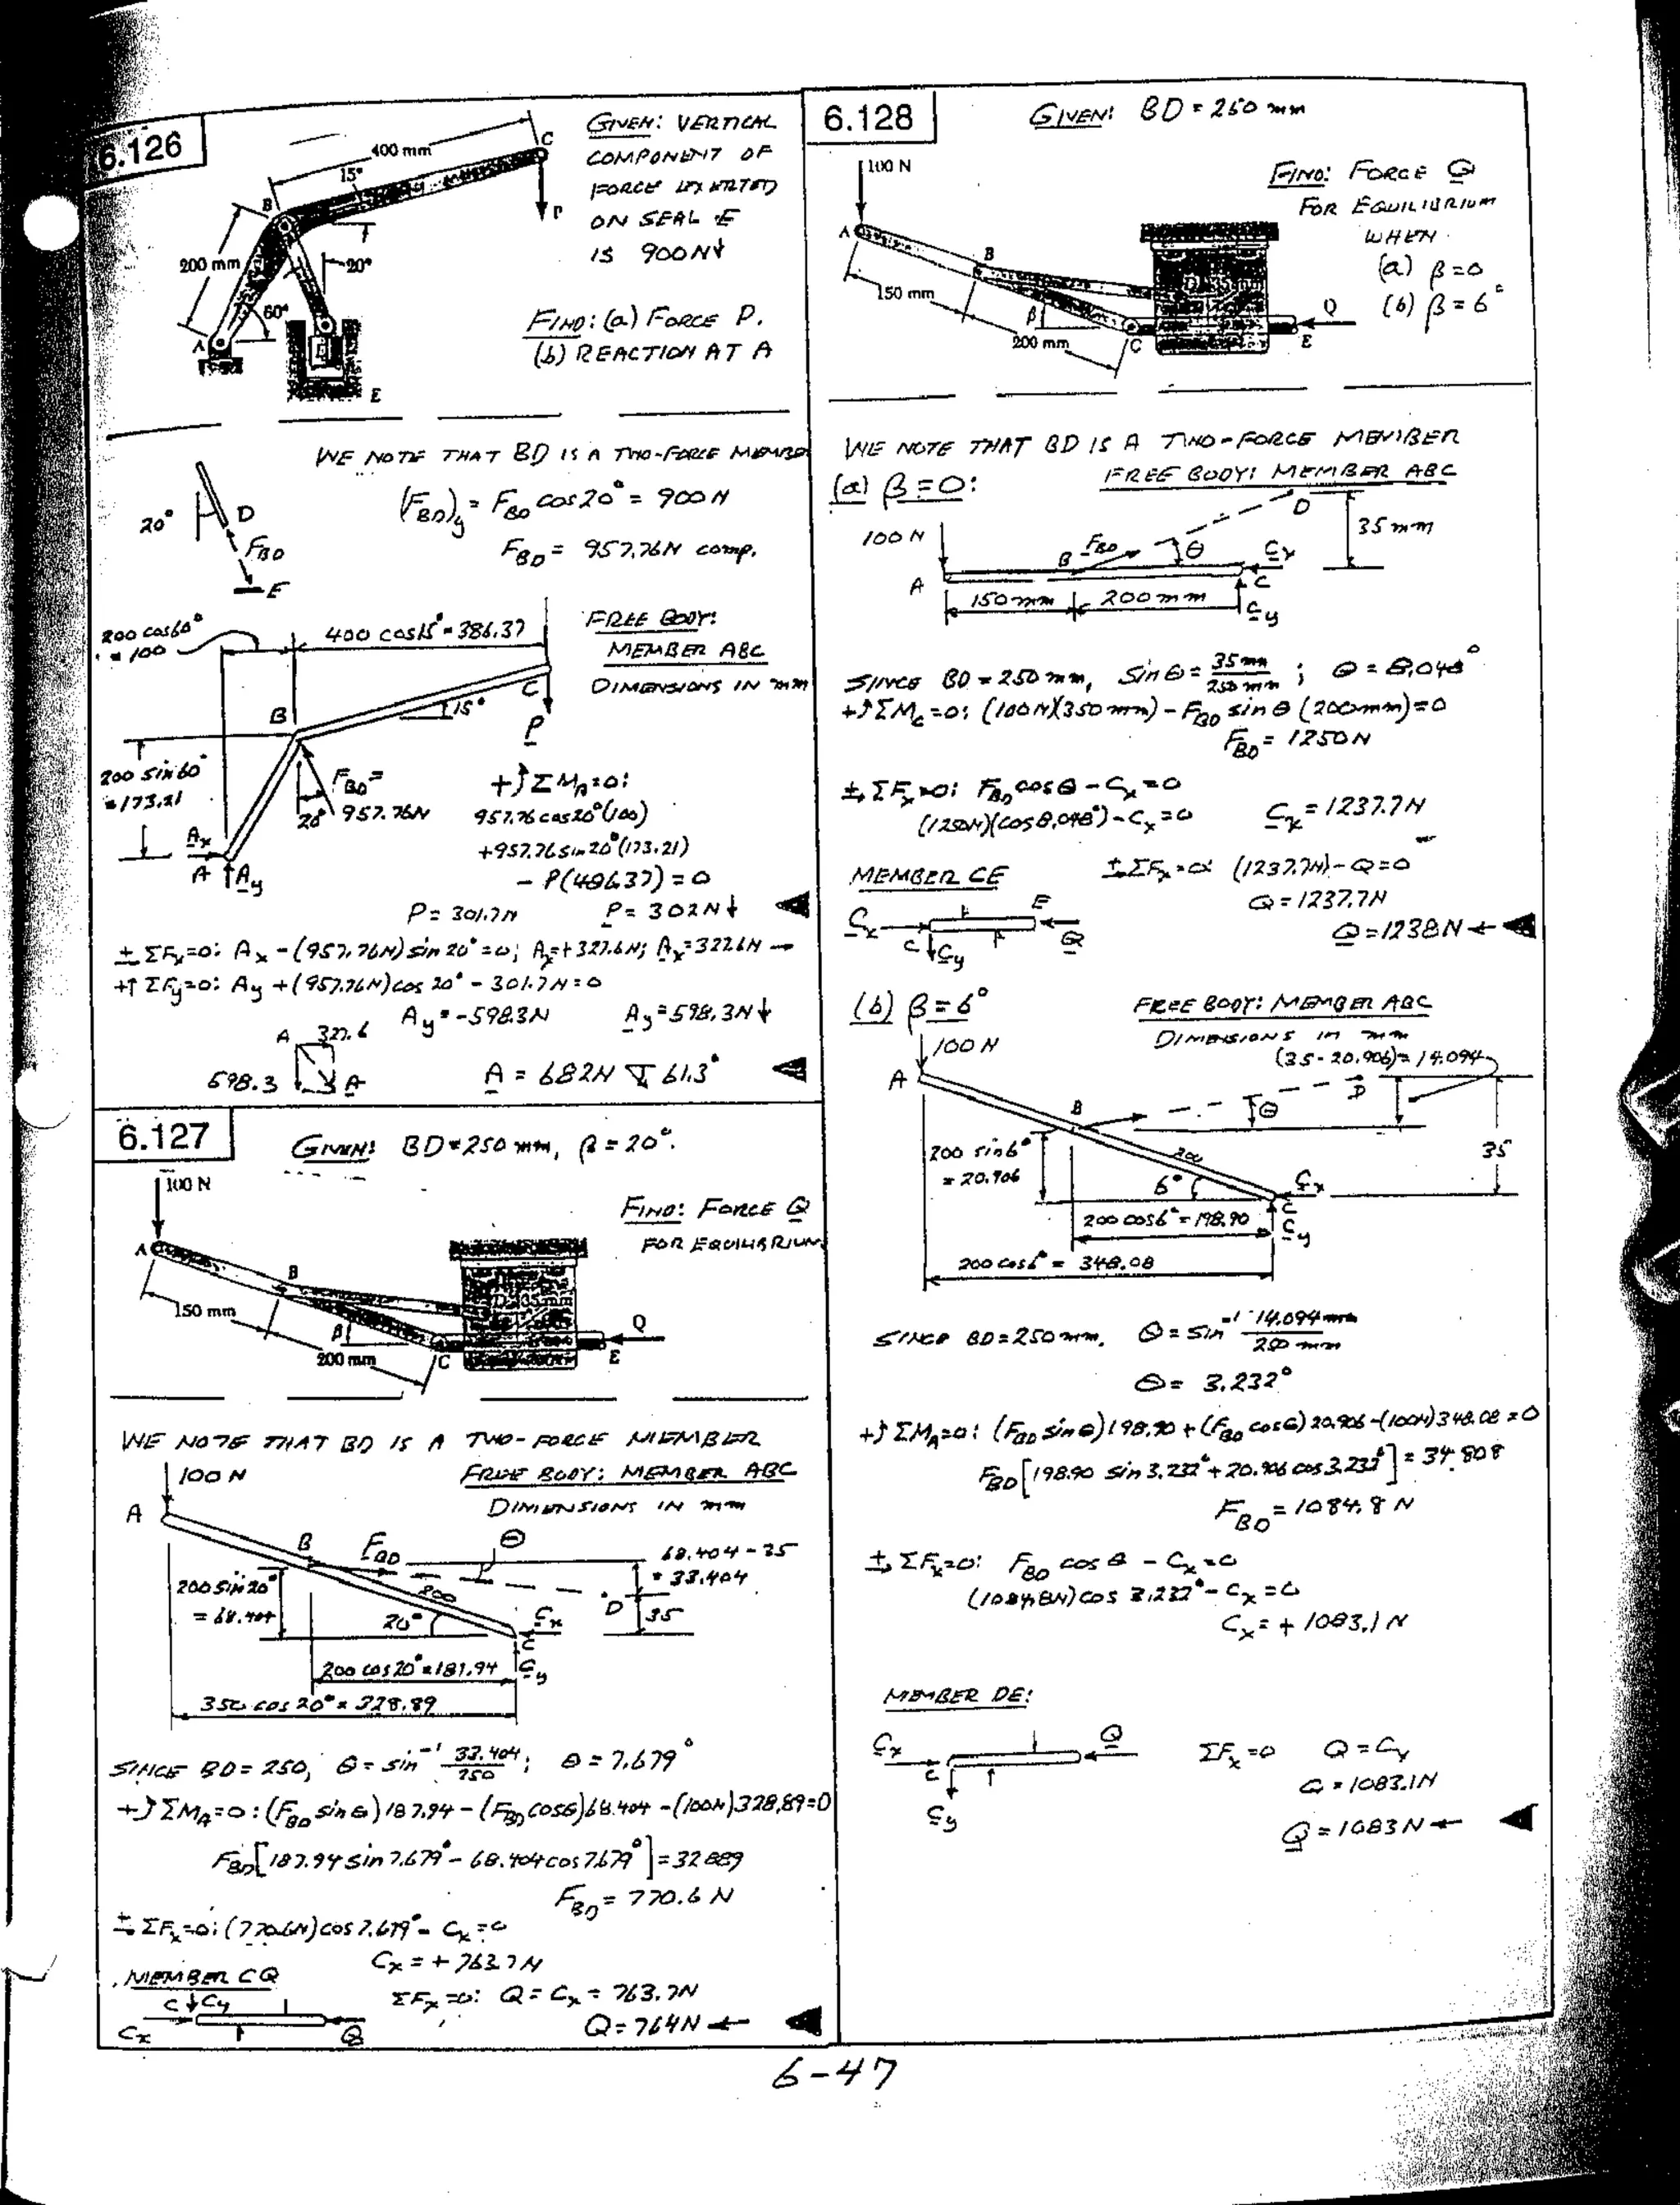 6.126
GIVEN: VERTICAL
COMPONENT OF
FORCE EXERTED
ON SEAL E
IS 900N↓
FIND: (a) FORCE P.
(b) REACTION AT A
400 mm
15°
C
B
P
200 mm
20°
60°
A
E
WE NOTE THAT BD IS A TWO-FORCE MEMBE
20°
D
F_BD
E
(F_BD)_y = F_BD cos20° = 900N
F_BD = 957.76N comp.
200 cos60°
= 100
400 cos15° = 386.37
FREE BODY:
MEMBER ABC
DIMENSIONS IN mm
B
C
15°
P
200 sin60°
= 173.21
F_BD =
957.76N
20°
A_x
A
A_y
+↺ΣM_A=0:
957.76 cos20°(100)
+957.76 sin20°(173.21)
- P(486.37) = 0
P = 301.7N P = 302N↓
ΣF_x=0: A_x - (957.76N) sin 20° = 0; A_x=+327.6N; A_x=322.6N →
+↑ΣF_y=0: A_y + (957.76N) cos 20° - 301.7N = 0
A_y = -598.3N A_y = 598.3N↓
A 327.6
598.3 A
A = 682N 61.3°
6.127
GIVEN: BD=250 mm, β = 20°.
100 N
FIND: FORCE Q
FOR EQUILIBRIUM
A
B
150 mm
D 35 mm
β
Q
200 mm
C
E
WE NOTE THAT BD IS A TWO-FORCE MEMBER
100 N
FREE BODY: MEMBER ABC
DIMENSIONS IN mm
A
B
F_BD
θ
68.404 - 35
= 33.404
200 sin20°
= 68.404
200
20°
D
35
C_x
C
C_y
200 cos20° = 181.94
350 cos 20° = 328.89
SINCE BD = 250, θ = sin⁻¹ 33.404/250; θ = 7.679°
+↺ΣM_A=0: (F_BD sinθ)187.94 - (F_BD cosθ)68.404 - (100N)328.89=0
F_BD[187.94 sin 7.679° - 68.404 cos 7.679°] = 32889
F_BD = 770.6 N
ΣF_x=0: (770.6N) cos 7.679° - C_x = 0
C_x = + 763.7N
MEMBER CQ
ΣF_x=0: Q = C_x = 763.7N
C C_y
C_x Q
Q = 764N ←
6.128
GIVEN: BD = 250 mm
100 N
FIND: FORCE Q
FOR EQUILIBRIUM
WHEN
(a) β=0
(b) β=6°
A
B
150 mm
D 35 mm
β
Q
200 mm
C
E
WE NOTE THAT BD IS A TWO-FORCE MEMBER
(a) β=0:
FREE BODY: MEMBER ABC
100 N
D
35 mm
F_BD
θ
C_x
A
B
C
150 mm
200 mm
C_y
SINCE BD = 250 mm, sin θ = 35 mm/250 mm; θ = 8.048°
+↺ΣM_C=0: (100N)(350mm) - F_BD sin θ (200mm) = 0
F_BD = 1250N
ΣF_x=0: F_BD cosθ - C_x = 0
(1250N)(cos 8.048°) - C_x = 0 C_x = 1237.7N
MEMBER CE
ΣF_x=0: (1237.7N) - Q = 0
Q = 1237.7N
C_x
E
Q
C C_y
Q = 1238N ←
(b) β = 6°
FREE BODY: MEMBER ABC
DIMENSIONS IN mm
(35 - 20.906) = 14.094
100 N
A
B
D
θ
200 sin6°
= 20.906
200
6°
35
C_x
C
C_y
200 cos6° = 198.90
200 cos6° = 348.08
SINCE BD=250 mm. θ = sin⁻¹ 14.094 mm/250 mm
θ = 3.232°
+↺ΣM_A=0: (F_BD sinθ)198.90 + (F_BD cosθ)20.906 - (100N)348.08 = 0
F_BD[198.90 sin 3.232° + 20.906 cos 3.232°] = 34 808
F_BD = 1084.8 N
ΣF_x=0: F_BD cos θ - C_x = 0
(1084.8N) cos 3.232° - C_x = 0
C_x = + 1083.1 N
MEMBER DE:
C_x
Q
C
C_y
ΣF_x=0 Q = C_x
Q = 1083.1N
Q = 1083N ←
6-47